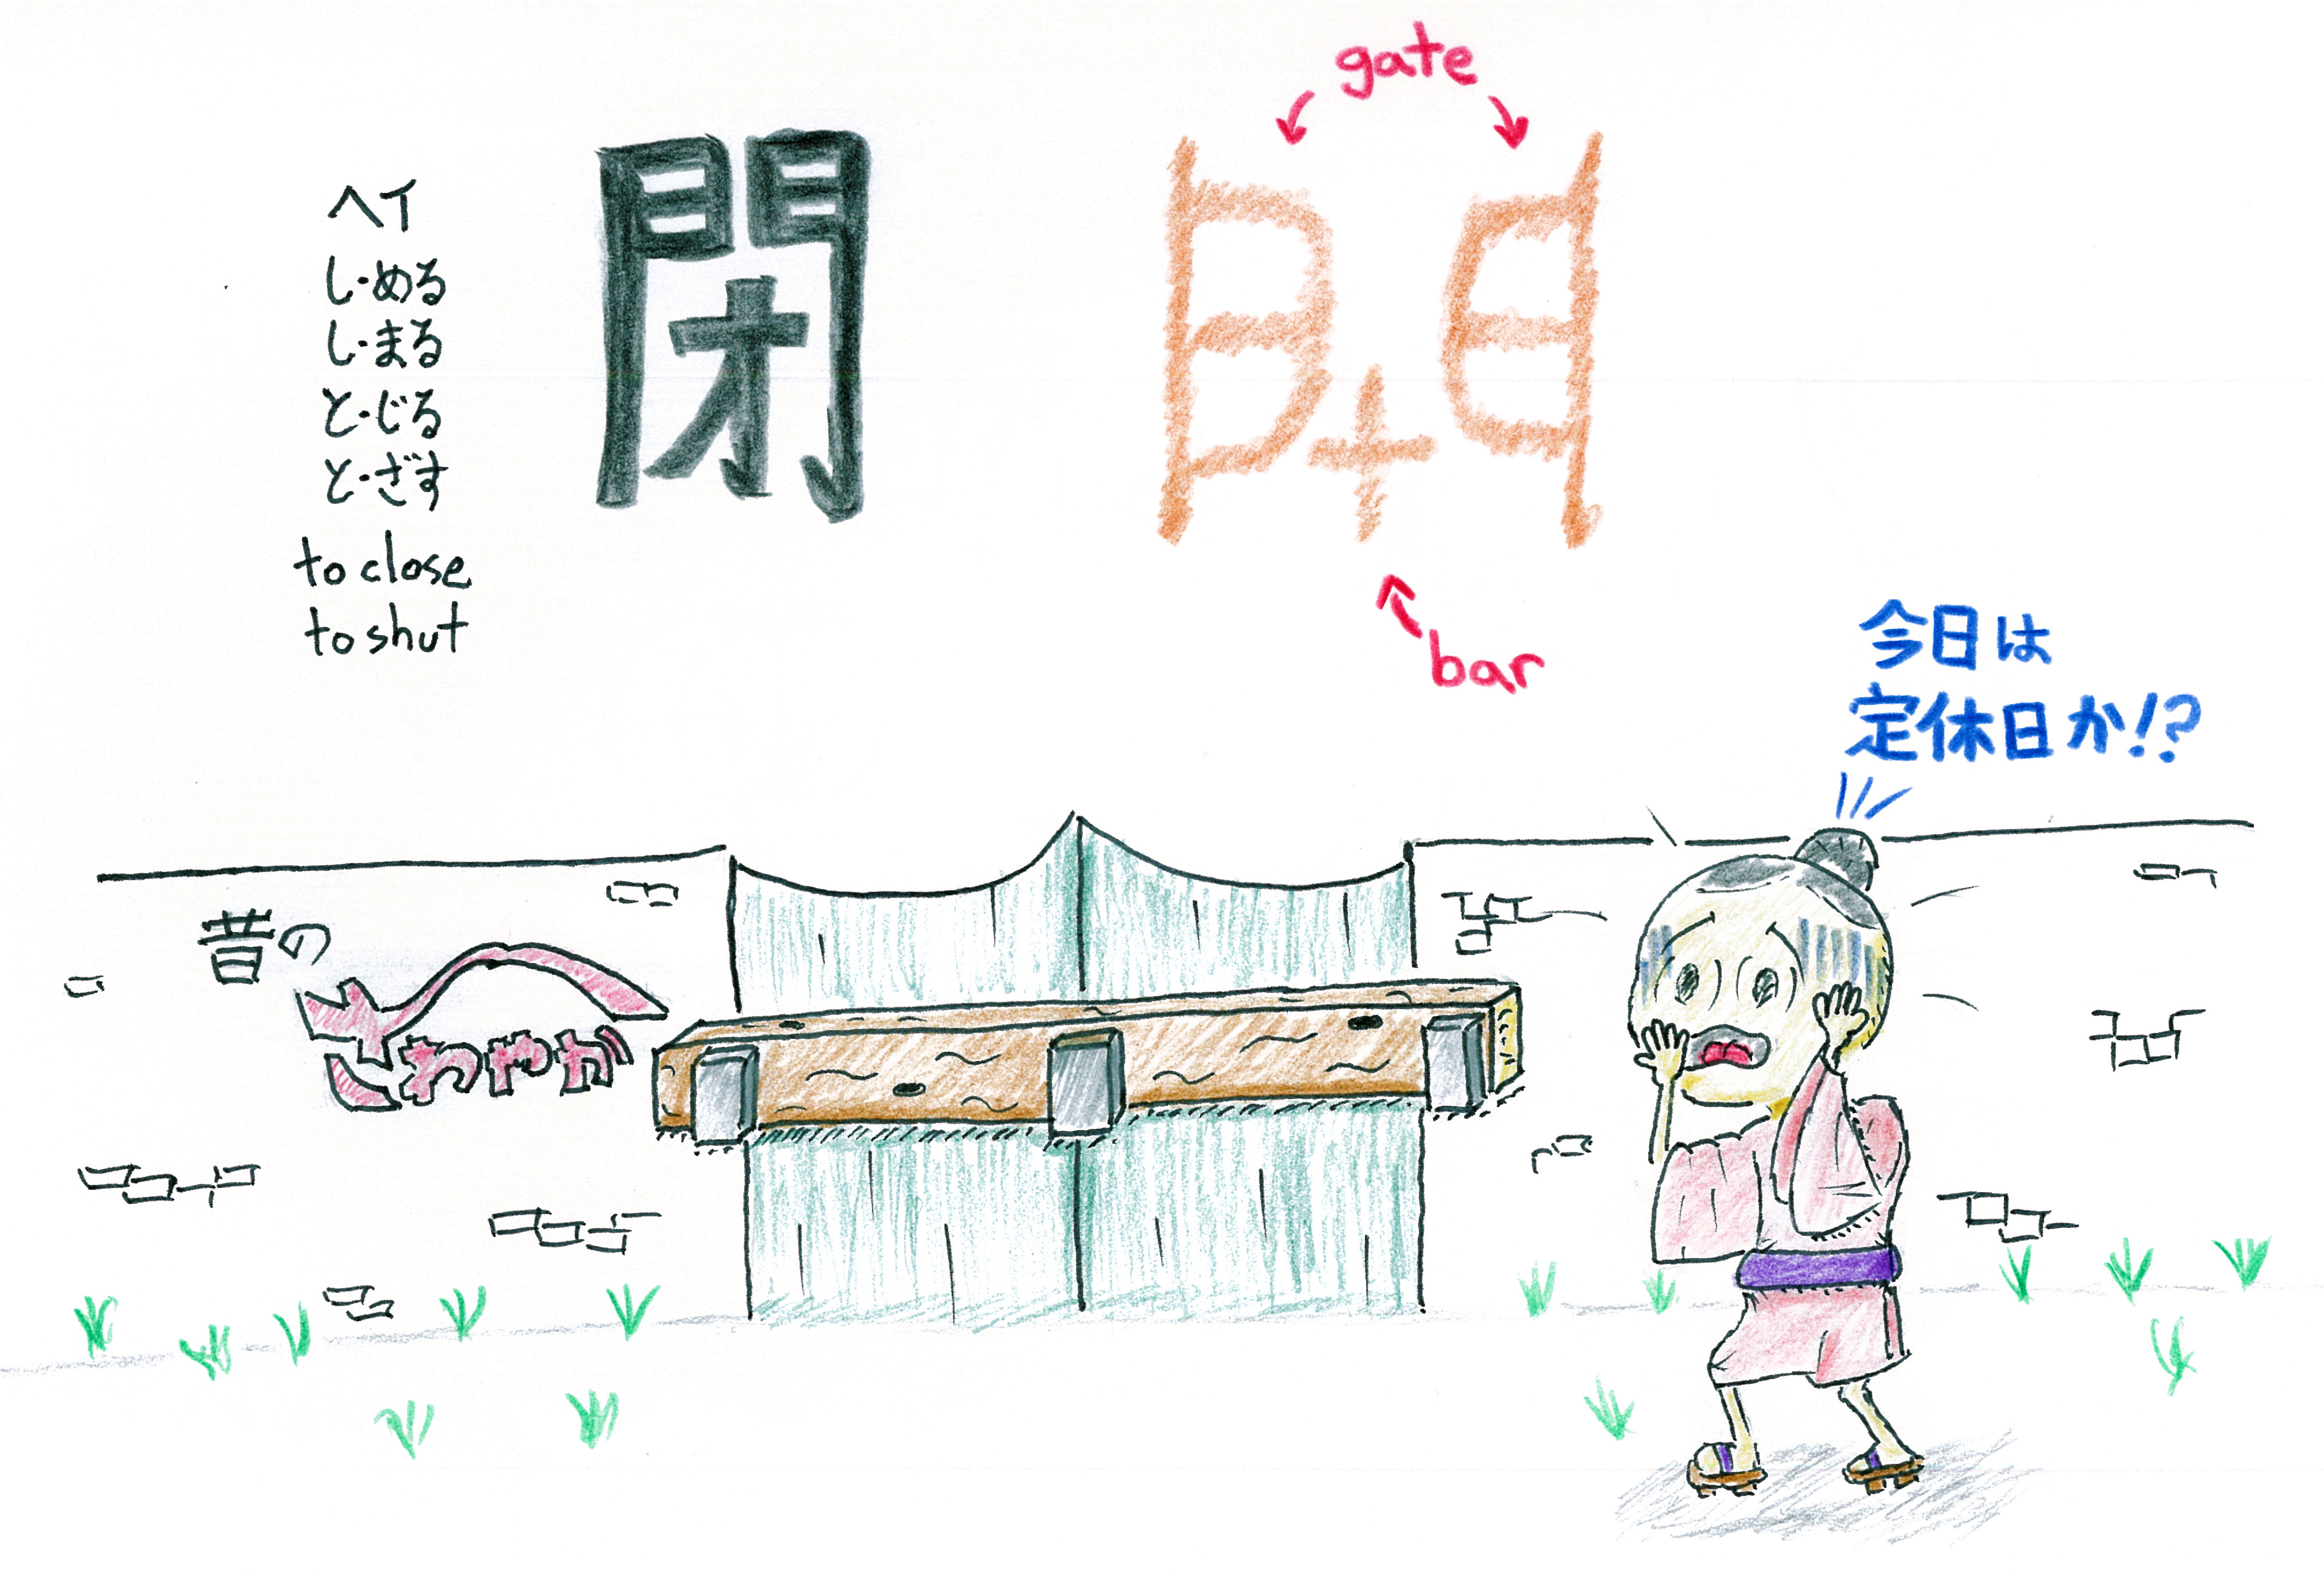 ヘイ
し・める
し・まる
と・じる
と・ざす
to close
to shut
閉
gate
bar
今日は
定休日か!?
昔の
さわやか